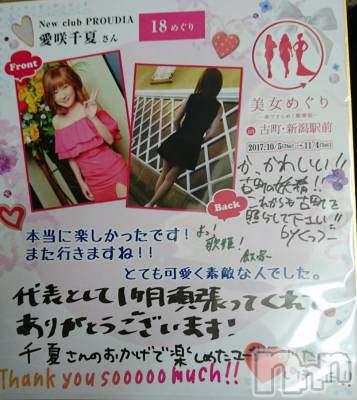 New club PROUDIA
愛咲千夏 さん
18 めぐり
Front
美女めぐり
in 古町・新潟駅前
2017:10/5(Thu)→11/4(Sat)
か、かわいい!!
古町の妖精!!
これからも古町を
照らして下さい!!
by くっつー
Back
よっ!
歌姫!
本当に楽しかったです!
また行きますね!!
とても可愛く素敵な人でした。
代表として1ヶ月頑張ってくれて
ありがとうございます!
千夏さんのおかげで楽しめたユー
Thank you sooooo much!!